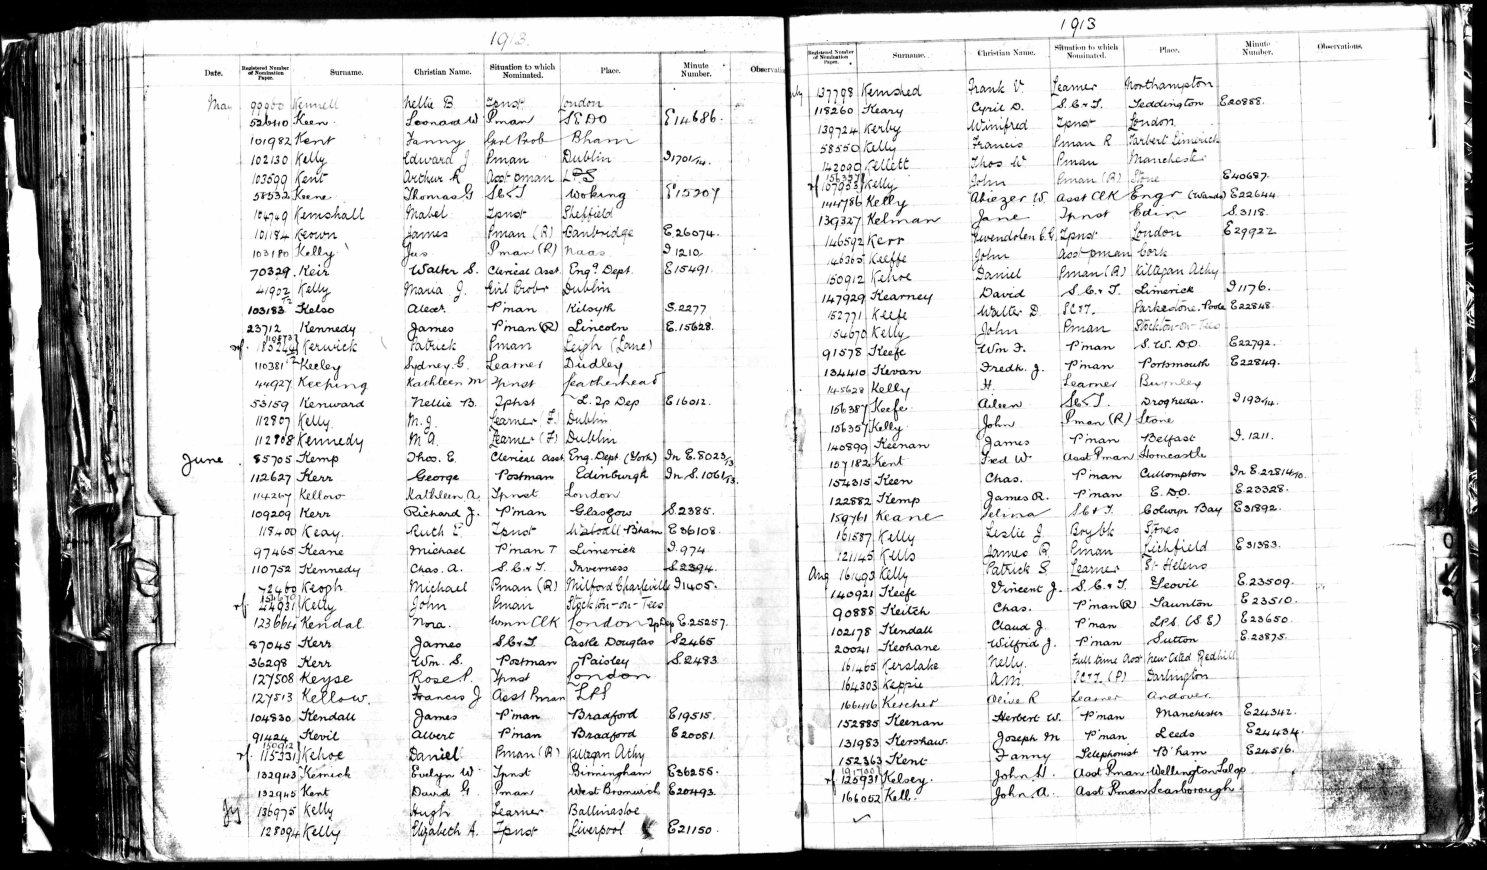 1913.
Date. Registered Number of Nomination Paper. Surname. Christian Name. Situation to which Nominated. Place. Minute Number. Observations
May 99900 Kennell Nellie B. Tpnst London
52640 Keen Leonard W. Pman S.E.D.O E14686.
101982 Kent Fanny Girl Prob B'ham
102130 Kelly Edward J. Pman Dublin I1701/14.
103599 Kent Arthur R Asst Pman LPS
58532 Keene Thomas G SC&T Woking E15207
104749 Kemshall Mabel Tpnst Sheffield
101184 Keown James Pman (R) Cambridge E.26074.
103180 Kelly Jas Pman (R) Naas I 1210
70329. Keir Walter S. Clerical Asst. Engg. Dept. E15491.
41902 Kelly Maria J. Girl Probr Dublin
103183 Kelso Alexr. P'man Kilsyth S.2277
23712 Kennedy James P'man (R) Lincoln E.15628.
rf. Kerwick Patrick Pman Leigh (Lanc)
110381 Keeley Sydney G. Learner Dudley
44927 Keeping Kathleen M Tpnst Leatherhead
53159 Kenward Nellie B. Tphst L. Tp Dep E16012.
112807 Kelly. M.J. Learner (F.) Dublin
112908 Kennedy M.A. Learner (F) Dublin
June 85705 Kemp Thos. E. Clerical Asst. Eng. Dept (York) In E.8023/13
112627 Kerr George Postman Edinburgh In S.1061/13.
114267 Kellow Kathleen A. Tpnst London
109209 Kerr Richard J. P'man Glasgow S.2385.
118400 Keay. Ruth E. Tpnst Walsall B'ham E36108.
97465 Keane Michael P'man T Limerick I.974.
110752 Kennedy Chas. A. S.C.&T. Inverness S2394.
72460 Keogh Michael Pman (R) Milford Charleville I1405.
rf. 44931 Kelly John Pman Stockton-on-Tees
123664 Kendal Nora. Wmn Clk London Tp Dep E.25257.
87045 Kerr James S.C.&T. Castle Douglas S2465
36298 Kerr Wm. S. Postman Paisley S.2483
127508 Keyse Rose P. Tpnst London
127513 Kellow. Francis J Asst Pman LPS
104830 Kendall James P'man Bradford E19515.
91424 Kevil Albert P'man Bradford E20081.
rf. 150912 115331 Kehoe Daniel Pman (R) Killagan Athy
132943 Kemick Evelyn W. Tpnst Birmingham E36255.
132945 Kent David G. Pman West Bromwich E20493.
Jy 136975 Kelly Hugh Learner Ballinasloe
128094 Kelly Elizabeth A. Tpnst Liverpool E21150.
1913
Registered Number of Nomination Paper. Surname. Christian Name. Situation to which Nominated. Place. Minute Number. Observations.
July 137798 Kemshed Frank V. Learner Northampton
118260 Keary Cyril D. S.C.&T. Teddington E20888.
139724 Kerby Winifred Tpnst London
58550 Kelly Francis Pman R Tarbert Limerick
142090 Kellett Thos. W Pman Manchester
rf 156357 107953 Kelly John Pman (R) Stone E40687.
144786 Kelly Abiezer W. Asst Clk Engr (Wands) E22644
139327 Kelman Jane Tpnst Edin S.3118.
146592 Kerr Gwendolen C.G. Tpnst London E29922
146365 Keeffe John Asst Pman Cork
150912 Kehoe Daniel Pman (R) Killagan Athy
147929 Kearney David S.C.&T. Limerick I1176.
152771 Keefe Walter D. SC&T. Parkestone. Poole E22848.
154670 Kelly John Pman Stockton-on-Tees
91578 Keefe Wm F. P'man S.W.D.O. E22792.
134410 Kevan Fredk. J. P'man Portsmouth E22849.
145628 Kelly H. Learner Burnley
156387 Keefe Aileen SC&T. Drogheda. I193/14.
156357 Kelly John Pman (R) Stone
140899 Keenan James P'man Belfast I.1211.
157182 Kent Fred W. Asst Pman Horncastle
154315 Keen Chas. P'man Cullompton In E.22814/10.
122882 Kemp James R. P'man E.D.O. E.23328.
159761 Keane Selina SC&T. Colwyn Bay E31892.
161587 Kelly Leslie J Boy Clk Stores
121145 Kells James R. Pman Lichfield E31383.
Aug 161493 Kelly Patrick S. Learner St Helens
140921 Keefe Vincent J. S.C.&T. Yeovil E.23509.
90888 Keitch Chas. P'man (R) Taunton E23510.
102178 Kendall Claud J. P'man LPS. (S.E) E23650.
20041 Keohane Wilfrid J. P'man Sutton E.23875.
161465 Kerslake Nelly. Full time Asst Redhill
164303 Keppie A.M. SC&T. (P) Darlington
166416 Kercher Olive R Learner Andover
152885 Keenan Herbert W. P'man Manchester E24342.
131983 Kershaw. Joseph M P'man Leeds E24434.
152363 Kent Fanny Telephonist B'ham E24516.
rf 125931 Kelsey. John H. Asst Pman Wellington Salop
166052 Kell. John A. Asst Pman Scarborough